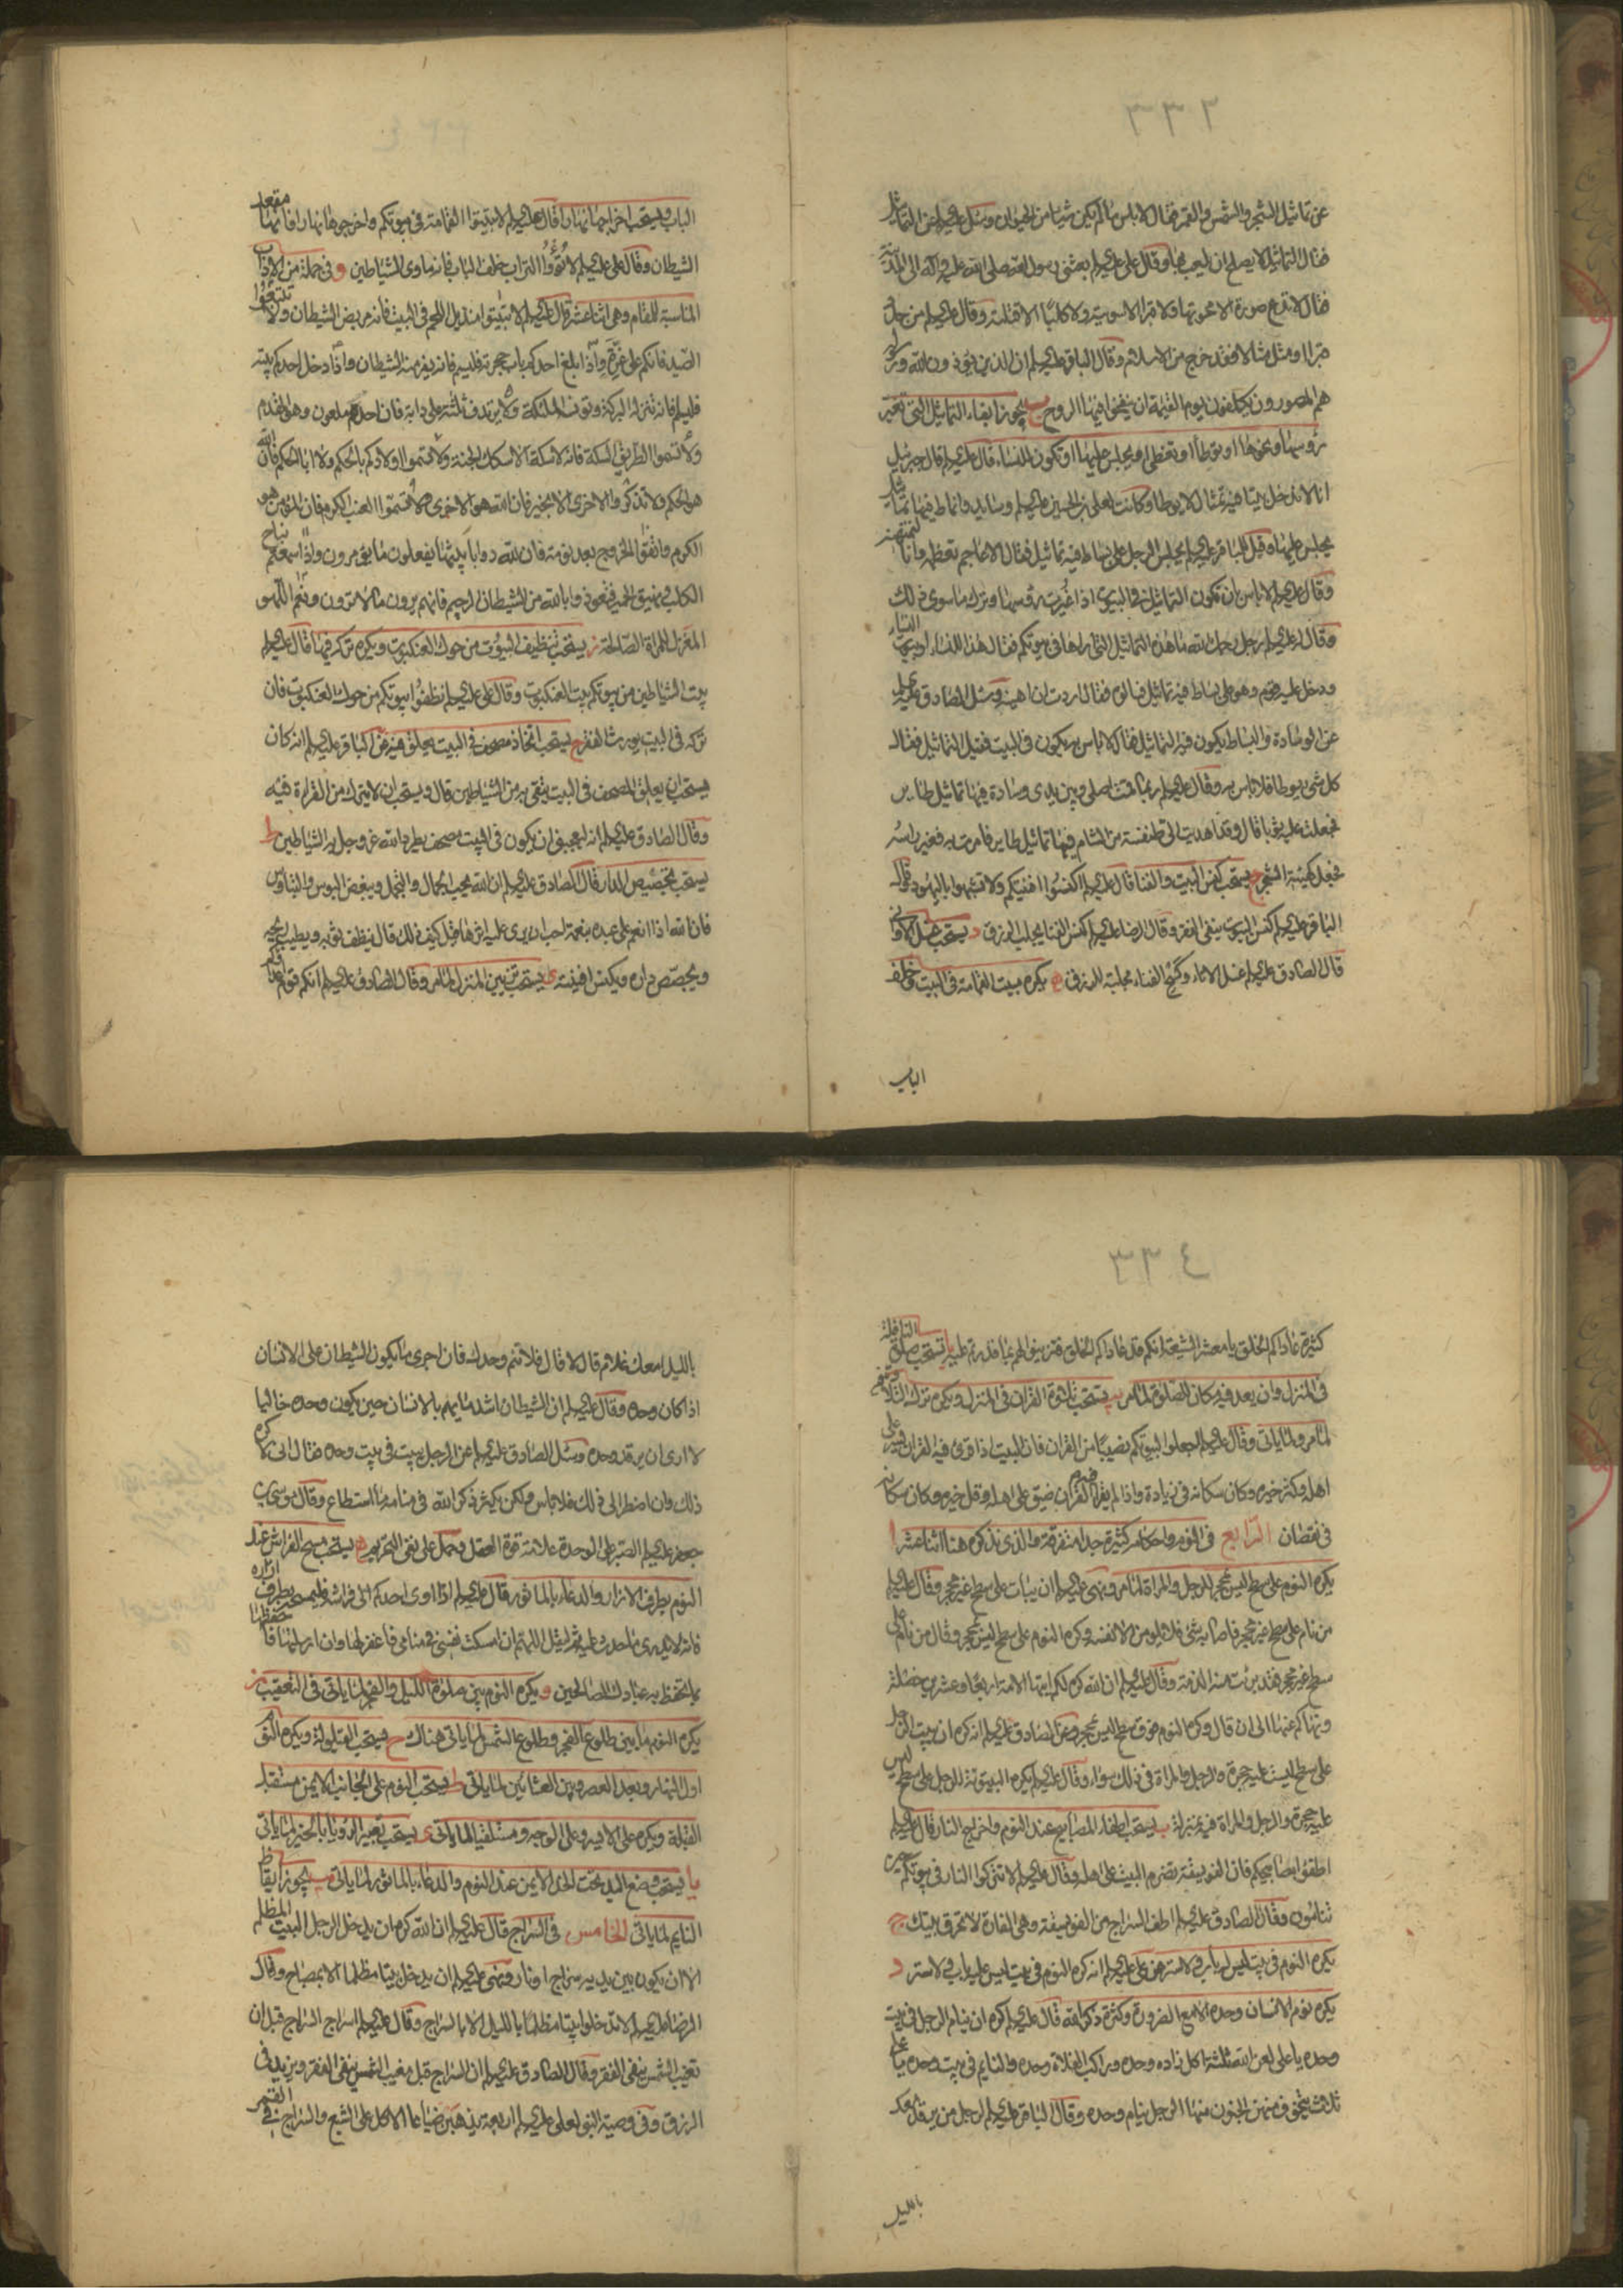 عن تماثيل الشجر والشمس والقمر فقال لا باس ما لم يكن شيئا من الحيوان وسئل عليه السلم عن التماثيل
فقال التماثيل لا يصلح ان يلعب بها وقال علي عليه السلم بعثني رسول الله صلى الله عليه وآله الى المدينة
فقال لا تدع صورة الا محوتها ولا قبرا الا سويته ولا كلبا الا قتلته وقال عليه السلم من جدد
قبرا او مثل مثالا فقد خرج من الاسلام وقال الباقر عليه السلم ان الذين يؤذون الله ورسوله
هم المصورون يكلفون يوم القيمة ان ينفخوا فيها الروح ب يجوز ابقاء التماثيل التي تغير
رؤوسها ومحوها او توطأ او تغطى او يجلس عليها او تكون للنساء قال عليه السلم قال جبرئيل
انا لا ندخل بيتا فيه تمثال لا يوطا وكانت لعلي بن الحسين عليه السلم وسايد وانماط فيها تماثيل
يجلس عليها وقيل للباقر عليه السلم يجلس الرجل على بساط فيه تماثيل فقال الاعاجم تعظمه وانا لنمتهنه
وقال عليه السلم لا باس ان تكون التماثيل في البيوت اذا غيرت رؤسها وترك ما سوى ذلك
وقال له عليه السلم رجل رحمك الله ما هذه التماثيل التي اراها في بيوتكم فقال هذا للنساء او بيوت النساء
ودخل عليه قوم وهو على بساط فيه تماثيل فسالوه فقال اردت ان اهينه وسئل الصادق عليه السلم
عن الوسادة والبساط يكون فيه التماثيل فقال لا باس به يكون في البيت فقيل التماثيل فقال
كل شيء يوطا فلا باس به وقال عليه السلم ربما قمت اصلي وبين يدي وسادة فيها تماثيل طاير
فجعلت عليه ثوبا قال وقد اهديت الي طنفسة من الشام فيها تماثيل طاير فامرت به فغير راسه
فجعل كهيئة الشجر ج يستحب كنس البيت والفنا قال عليه السلم اكنسوا افنيتكم ولا تشبهوا باليهود وقال
الباقر عليه السلم كنس البيوت ينفي الفقر وقال الرضا عليه السلم كنس الفنا يجلب الرزق د يستحب غسل الاواني
قال الصادق عليه السلم غسل الاناء وكسح الفناء مجلبة للرزق ه يكره مبيت القمامة في البيت وخلف
الباب
الباب ويستحب اخراجها نهارا قال عليه السلم لا تبيتوا القمامة في بيوتكم واخرجوها نهارا فانها مقعد
الشيطان وقال علي عليه السلم لا تؤووا التراب خلف الباب فانه ماوى الشياطين و في جملة من الاداب
المناسبة للمقام وهي اثنا عشر قال عليه السلم لا تبيتوا منديل اللحم في البيت فانه مربض الشيطان ولا تتبعوا
الصيد فانكم على غرة واذا بلغ احدكم باب حجرته فليسم فانه يفر منه الشيطان واذا دخل احدكم بيته
فليسلم فانه تنزله البركة وتونسه الملئكة ولا يرتدف ثلثة على دابة فان احدهم ملعون وهو المقدم
ولا تسموا الطريق السكة فانه لا سكة الا سكك الجنة ولا تسموا اولادكم بالحكم ولا ابا الحكم فان الله
هو الحكم ولا تذكروا الاخرى الا بخير فان الله هو الاخرى ولا تسموا العنب الكرم فان المؤمن هو
الكرم واتقوا الخروج بعد نومة فان لله دوابا يبثها يفعلون ما يؤمرون واذا سمعتم نباح
الكلب ونهيق الحمير فتعوذوا بالله من الشيطان الرجيم فانهم يرون ما لا ترون ونعم اللهو
المغزل للمراة الصالحة ز يستحب تنظيف البيوت من حوك العنكبوت ويكره تركه فيها قال عليه السلم
بيت الشياطين من بيوتكم بيت العنكبوت وقال علي عليه السلم نظفوا بيوتكم من حوك العنكبوت فان
تركه في البيت يورث الفقر ح يستحب اتخاذ مصحف في البيت يعلق فيه عن الباقر عليه السلم انه كان
يستحب ان يعلق المصحف في البيت يتقى به من الشياطين قال ويستحب ان لا يترك من القراءة فيه
وقال الصادق عليه السلم انه ليعجبني ان يكون في البيت مصحف يطرد الله عز وجل به الشياطين ط
يستحب تجصيص الدار قال الصادق عليه السلم ان الله يحب الجمال والتجمل ويبغض البوس والتباوس
فان الله اذا انعم على عبده بنعمة احب ان يرى عليه اثرها قيل كيف ذلك قال ينظف ثوبه ويطيب ريحه
ويجصص داره ويكنس افنيته ى يستحب تزيين المنزل لما مر وقال الصادق عليه السلم انكم قوم اعداؤكم
كثيرة عاداكم الخلق يا معشر الشيعة انكم قد عاداكم الخلق فتزينوا لهم بما قدرتم عليه يا تستحب صلوة النافلة
في المنزل وان يعد فيه مكان للصلوة لما مر يب يستحب تلاوة القران في المنزل ويكره ترك التلاوة فيه
لما مر ولما ياتي وقال عليه السلم اجعلوا لبيوتكم نصيبا من القران فان البيت اذا قرئ فيه القران يسر على
اهله وكثر خيره وكان سكانه في زيادة واذا لم يقرا فيه القران ضيق على اهله وقل خيره وكان سكانه
في نقصان الرابع في النوم واحكامه كثيرة جدا متفرقة والذي نذكره هنا اثنا عشر ا
يكره النوم على سطح ليس بمحجر للرجل والمراة لما مر ونهى عليه السلم ان يبات على سطح غير محجر وقال عليه السلم
من نام على سطح غير محجر فاصابه شئ فلا يلومن الا نفسه وكره النوم على سطح ليس بمحجر وقال من نام على
سطح غير محجر فقد برئت منه الذمة وقال عليه السلم ان الله كره لكم ايتها الامة اربعا وعشرين خصلة
ونهاكم عنها الى ان قال وكره النوم فوق سطح ليس بمحجر وعن الصادق عليه السلم انه كره ان يبيت الرجل
على سطح ليست عليه حجرة والرجل والمراة في ذلك سواء وقال عليه السلم يكره البيتوتة للرجل على سطح ليس
عليه حجرة والرجل والمراة فيه بمنزلة ب يستحب اطفاء المصابيح عند النوم واخراج النار قال عليه السلم
اطفؤا مصابيحكم فان الفويسقة تضرم البيت على اهله وقال عليه السلم لا تتركوا النار في بيوتكم حين
تنامون وقال الصادق عليه السلم اطف السراج من الفويسقة وهي الفارة لا تحرق بيتك ج
يكره النوم في بيت ليس له باب ولا ستر عن علي عليه السلم انه كره النوم في بيت ليس عليه باب ولا ستر د
يكره نوم الانسان وحده الا مع الضرورة وكثرة ذكر الله قال عليه السلم كره ان ينام الرجل في بيت
وحده يا علي لعن الله ثلثة اكل زاده وحده وراكب الفلاة وحده والنايم في بيت وحده يا علي
ثلاث يتخوف منهن الجنون منها الرجل ينام وحده وقال الباقر عليه السلم لرجل من يرقد معك
بالليل
بالليل امعك غلام قال لا قال فلا تنم وحدك فان اجرى ما يكون الشيطان على الانسان
اذا كان وحده وقال عليه السلم ان الشيطان اشد ما يهم بالانسان حين يكون وحده خاليا
لا ارى ان يرقد وحده وسئل الصادق عليه السلم عن الرجل يبيت في بيت وحده فقال اني لاكره
ذلك وان اضطر الى ذلك فلا باس ولكن يكثر ذكر الله في منامه ما استطاع وقال موسى بن
جعفر عليه السلم الصبر على الوحدة علامة قوة العقل وحمل على نفي التحريم ه يستحب مسح الفراش عند
النوم بطرف الازار والدعاء بالماثور قال عليه السلم اذا اوى احدكم الى فراشه فليمسحه بطرف ازاره
فانه لا يدري ما حدث عليه ثم ليقل اللهم ان امسكت نفسي في منامي فاغفر لها وان ارسلتها فاحفظها
بما تحفظ به عبادك الصالحين و يكره النوم بين صلوة الليل والفجر لما ياتي في التعقيب ز
يكره النوم ما بين طلوع الفجر وطلوع الشمس لما ياتي هناك ح يستحب القيلولة ويكره النوم
اول النهار وبعد العصر وبين العشائين لما ياتي ط يستحب النوم على الجانب الايمن مستقبل
القبلة ويكره على الايسر وعلى الوجه ومستلقيا لما ياتي ى يستحب تعبير الرؤيا بالخير لما ياتي
يا يستحب وضع اليد تحت الخد الايمن عند النوم والدعاء بالماثور لما ياتي يب يجوز ايقاظ
النايم لما ياتي الخامس في السراج قال عليه السلم ان الله كره ان يدخل الرجل البيت المظلم
الا ان يكون بين يديه سراج او نار ونهى عليه السلم ان يدخل بيتا مظلما الا بمصباح وقال
الرضا عليه السلم لا تدخلوا بيتا مظلما بالليل الا بالسراج وقال عليه السلم اسراج السراج قبل ان
تغيب الشمس ينفي الفقر وقال الصادق عليه السلم ان السراج قبل مغيب الشمس ينفي الفقر ويزيد في
الرزق وفي وصية النبي لعلي عليه السلم اربعة يذهبن ضياعا الاكل على الشبع والسراج في القمر